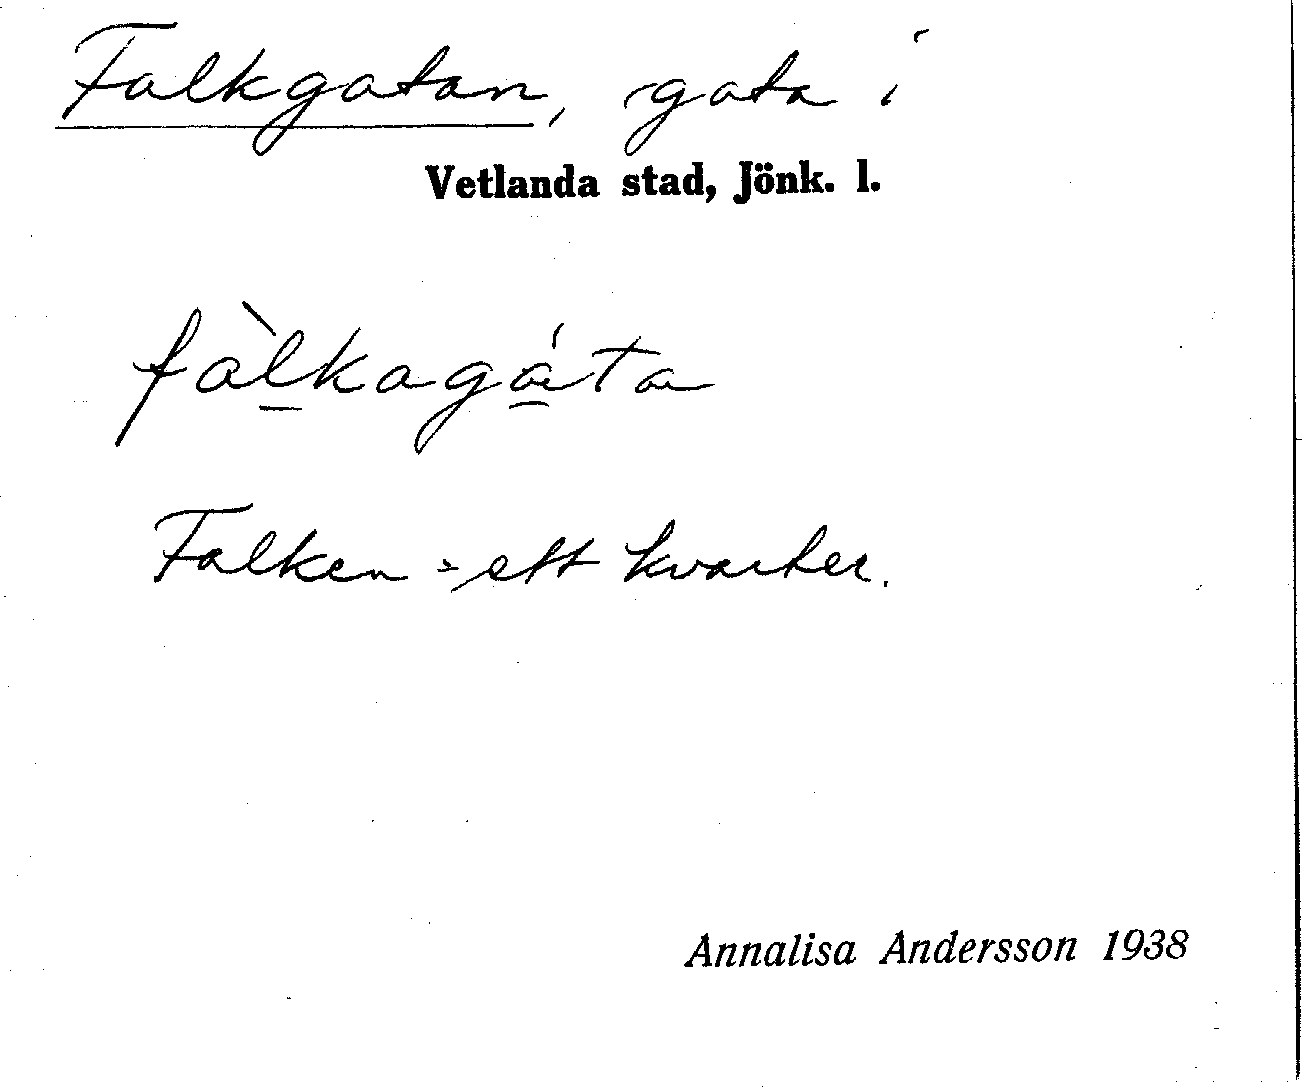 Falkgatan, gata i
Vetlanda stad, Jönk. l.
fàl̲kagá̲ta
Falken = ett kvarter.
Annalisa Andersson 1938